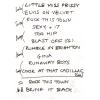 LITTLE MISS PRISSY
ELVIS ON VELVET
ROCK THIS TOWN
SEXY + 17
TOO HIP
BLAST OFF
RUMBLE IN BRIGHTON
GINA
RUNAWAY BOYS
LOOK AT THAT CADILLAC
ROCK THIS TOWN
BRING IT BACK